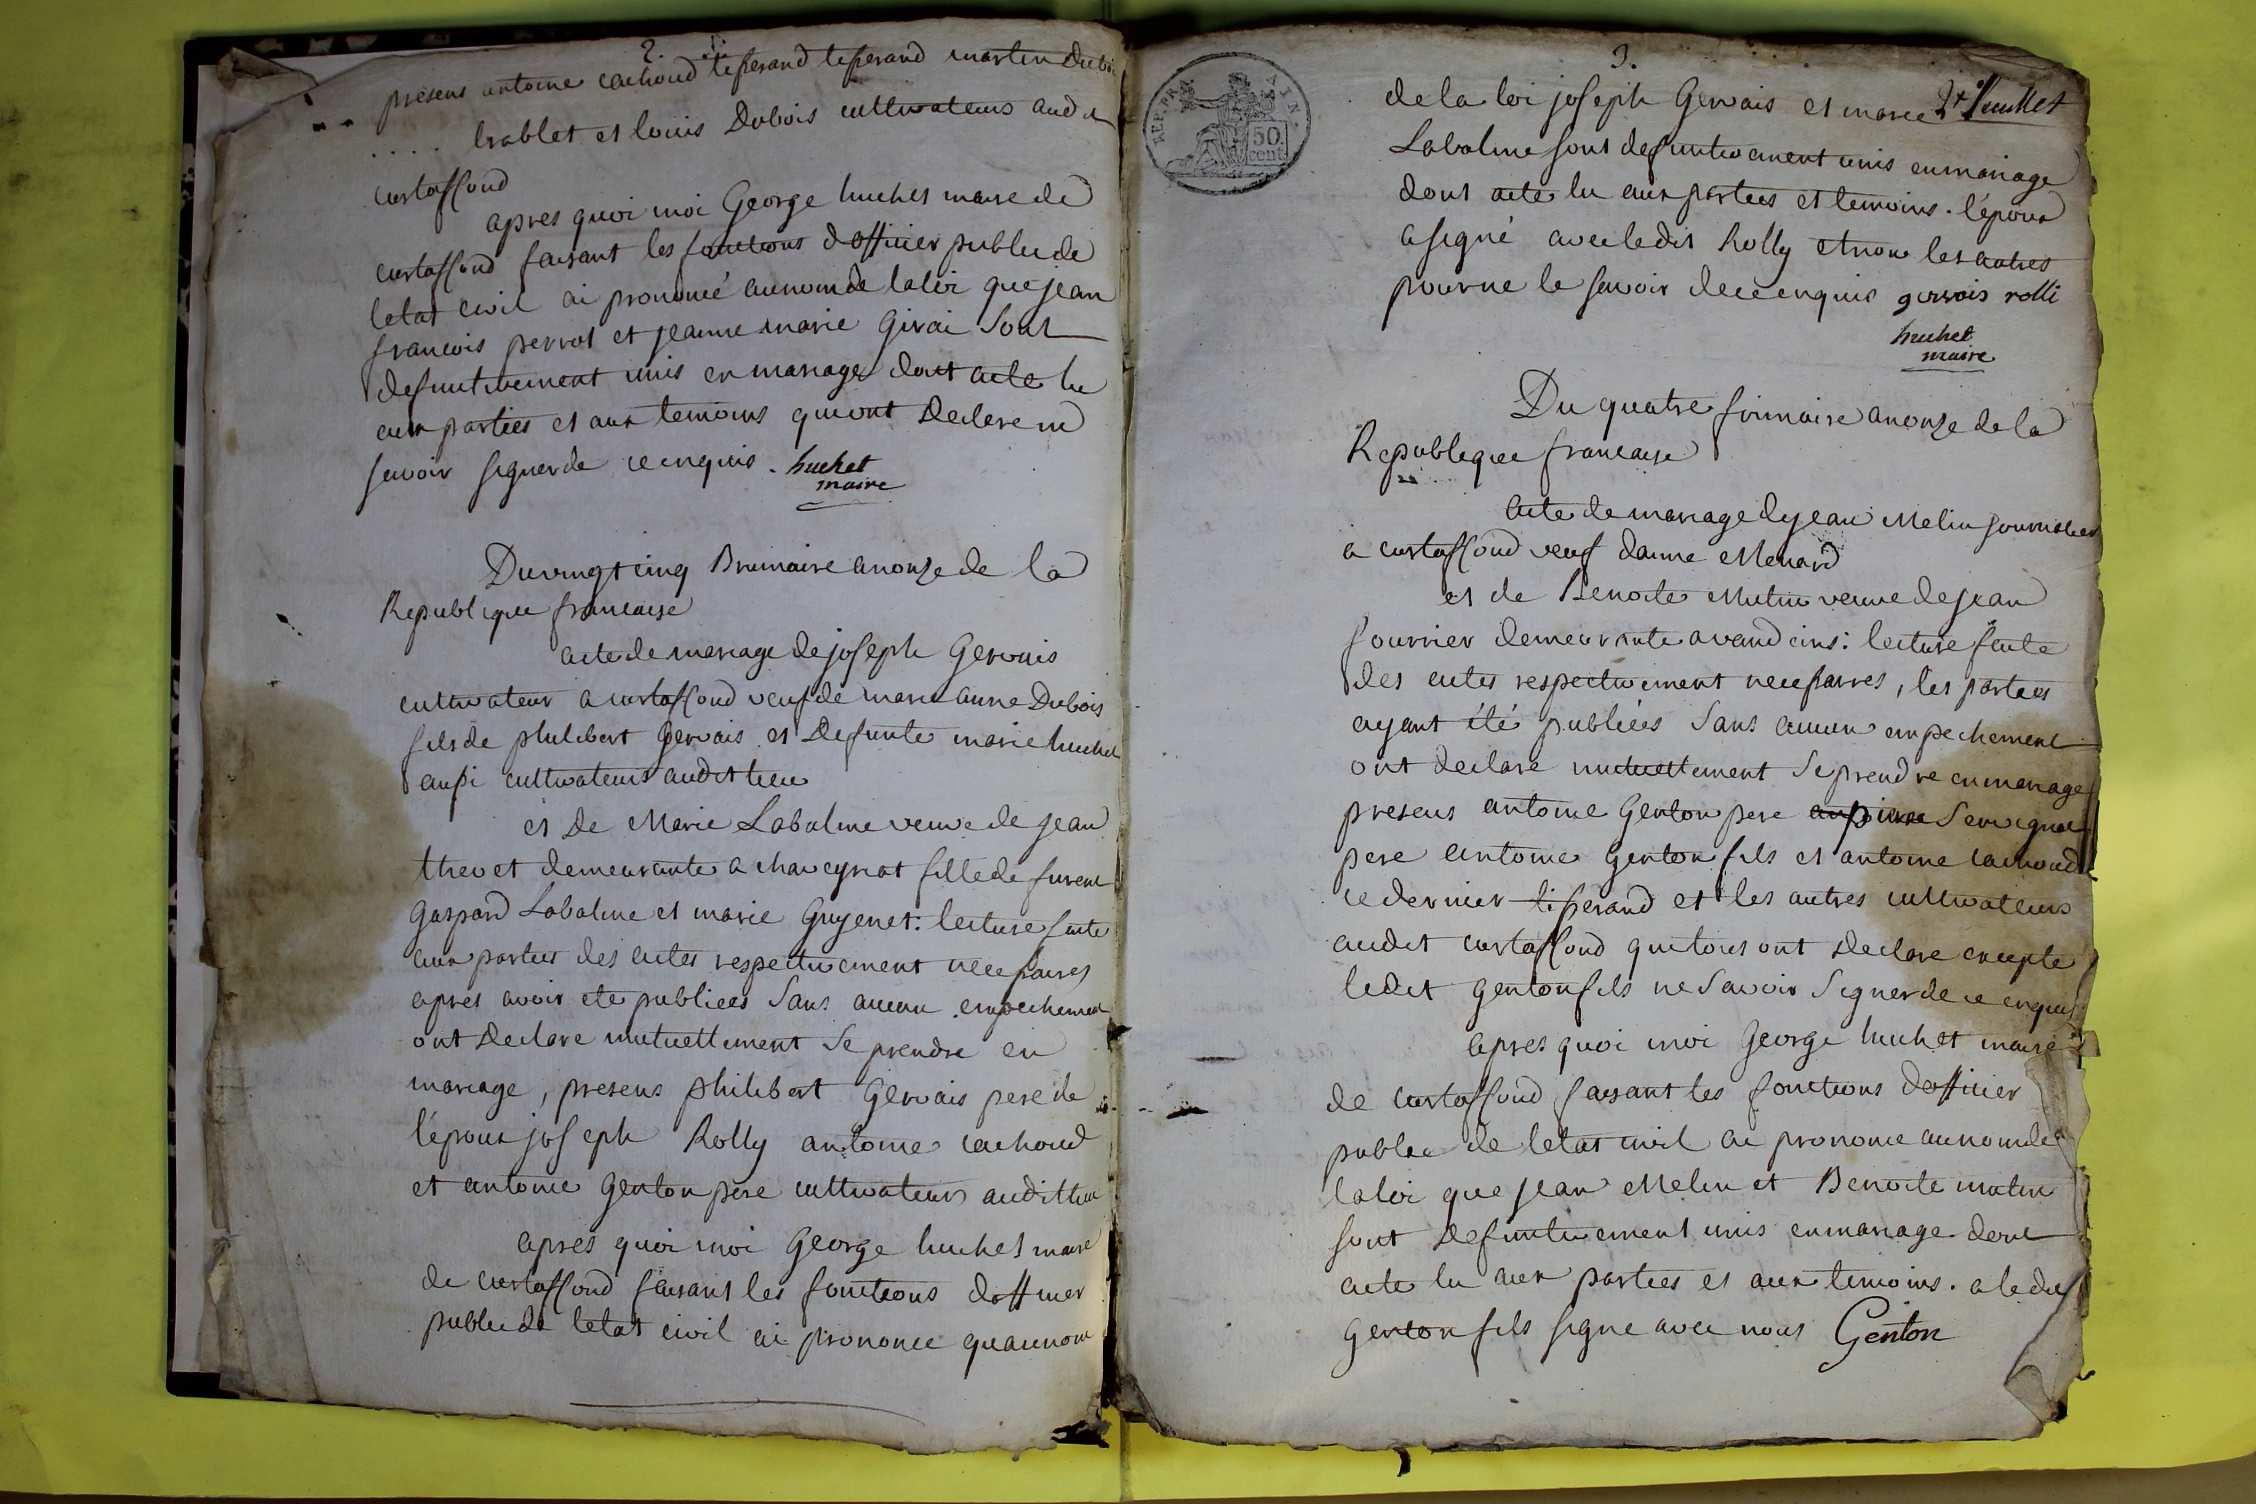 2.
présens antoine cachoud tisserand tisserand martin Dubois
brablet et louis Dubois cultivateurs audit
curtaffond
apres quoi moi George huchet maire de
curtaffond faisant les fonctions d officier public de
letat civil ai prononcé aunom de laloi que jean
francois perrot et jeanne marie Girai Sont
definitivement unis en mariage dont acte lu
aux parties et aux temoins qui ont Declare ne
savoir signer de ce enquis. huchet
maire
Du vingt cinq Brumaire an onze de la
Republique francaise
acte de mariage de joseph Gervais
cultivateur a curtaffond veuf de marie anne Dubois
fils de philibert Gervais et Defunte marie huchet
aussi cultivateurs audit lieu
et De Marie Labalme veuve de jean
thevet demeurante a chaveyriat fille de furent
Gaspard Labalme et marie Guyenet: lecture faite
aux parties des actes respectivement necessaires
apres avoir ete publiees Sans aucun empechement
ont Declare mutuellement Se prendre en
mariage, presens philibert Gervais pere de
l'époux joseph Rolly antoine cachoud
et antoine Genton père cultivateurs audit lieu
apres quoi moi George huchet maire
de curtaffond faisant les fonctions d officier
public de letat civil ai prononce quaunom
3.
2e feuillet
REP. FRA. AIN.
50 cent
de la loi joseph Gervais et marie
Labalme sont definitivement unis en mariage
dont acte lu aux parties et temoins. l'époux
a signé avec ledit Rolly et non les autres
pour ne le savoir de ce enquis gervais rolli
huchet
maire
Du quatre frimaire an onze de la
Republique francaise
acte de mariage de jean Melin journalier
a curtaffond veuf danne Menard
et de Benoite Mutin veuve de jean
fournier demeurante avandeins: lecture faite
des actes respectivement necessaires, les parties
ayant été publiées Sans aucun empechement
ont declaré mutuellement Se prendre en mariage
presens antoine Genton pere
pere antoine Genton fils et antoine cachoud
ce dernier tisserand et les autres cultivateurs
audit curtaffond qui tous ont Declare excepte
ledit genton fils ne Savoir Signer de ce enquis
apres quoi moi George huchet maire
de curtaffond faisant les fonctions dofficier
public de letat civil ai prononce aunom de
laloi que jean Melin et Benoite mutin
sont Definitivement unis en mariage dont
acte lu aux parties et aux temoins. a ledit
genton fils signe avec nous Genton